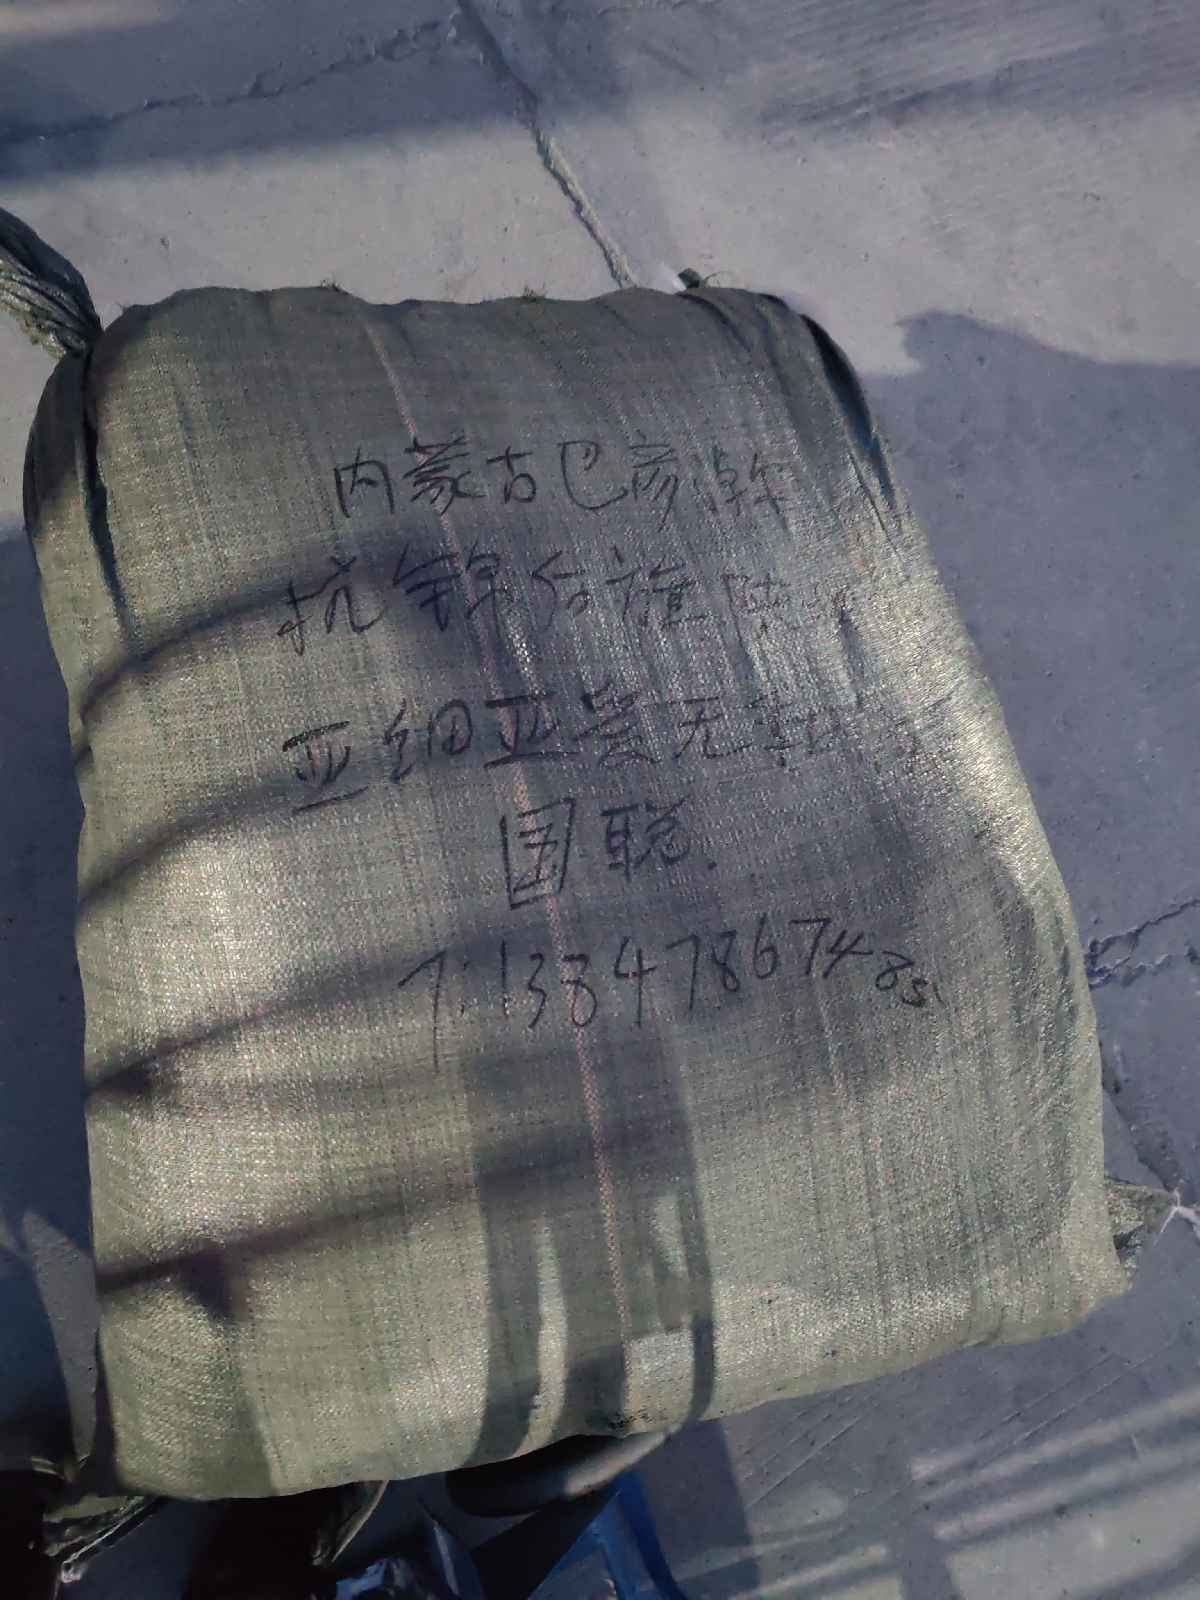 内蒙古巴彦淖尔
杭锦后旗陕坝
亚细亚
国聪.
T:13847867485